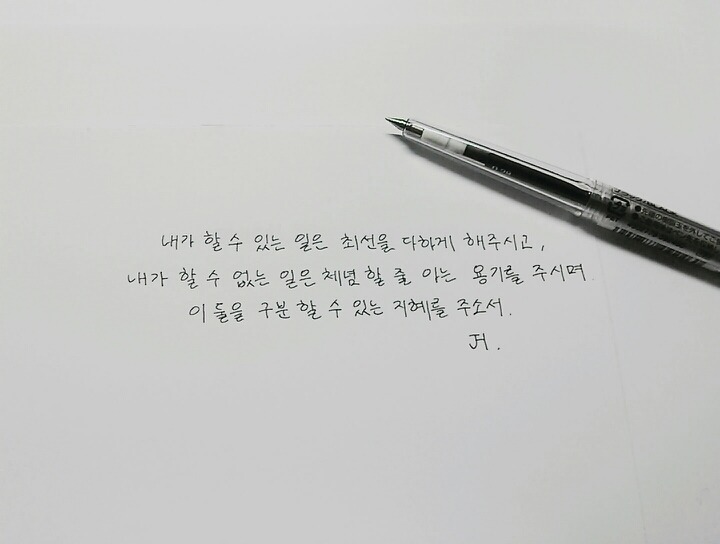 내가 할 수 있는 일은 최선을 다하게 해주시고,
내가 할 수 없는 일은 체념 할 줄 아는 용기를 주시며
이 둘을 구분 할 수 있는 지혜를 주소서.
JH.